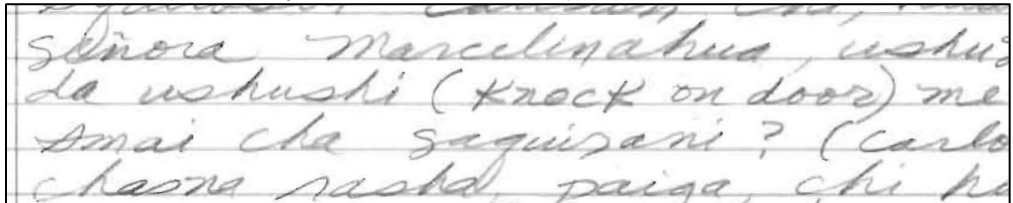 señora Marcelinahua, ushu
da ushushi (knock on door) me
Imai cha saquirani? (Carlo
chasna rasha, paiga, chi